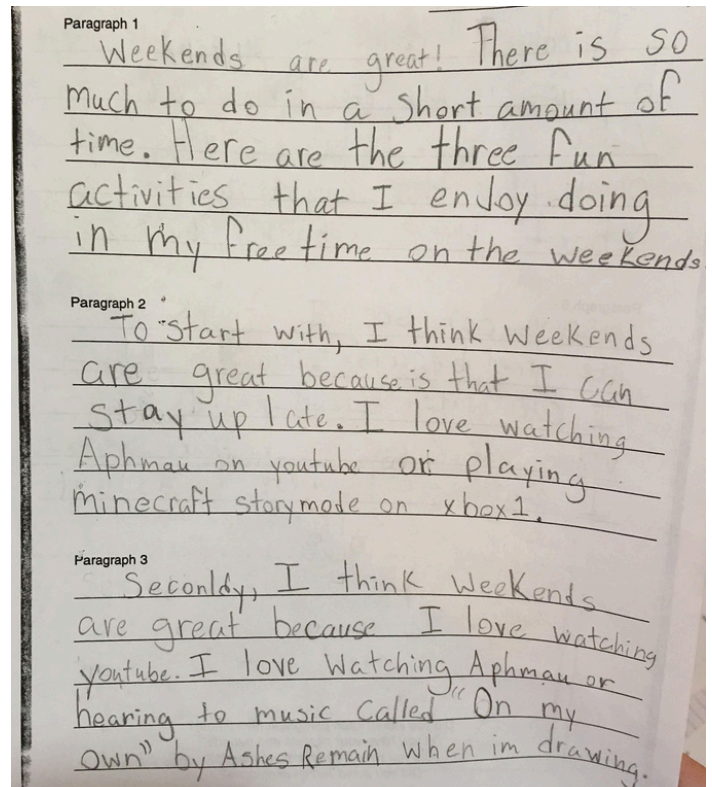 Paragraph 1
Weekends are great! There is so
much to do in a short amount of
time. Here are the three fun
activities that I enjoy doing
in my free time on the weekends
Paragraph 2
To start with, I think weekends
are great because is that I can
stay up late. I love watching
Aphmau on youtube or playing
minecraft storymode on xbox1.
Paragraph 3
Seconldy, I think weekends
are great because I love watching
youtube. I love watching Aphmau or
hearing to music called "On my
own" by Ashes Remain when im drawing.